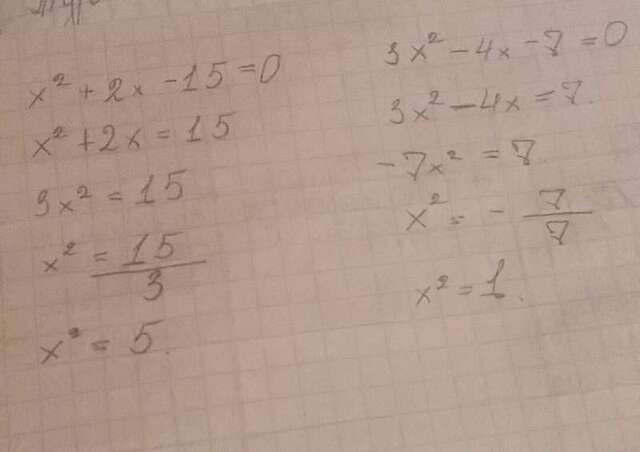 x² + 2x - 15 = 0
x² + 2x = 15
3x² = 15
x² = 15/3
x² = 5.
3x² - 4x - 7 = 0
3x² - 4x = 7.
-7x² = 7.
x² = - 7/7
x² = 1.